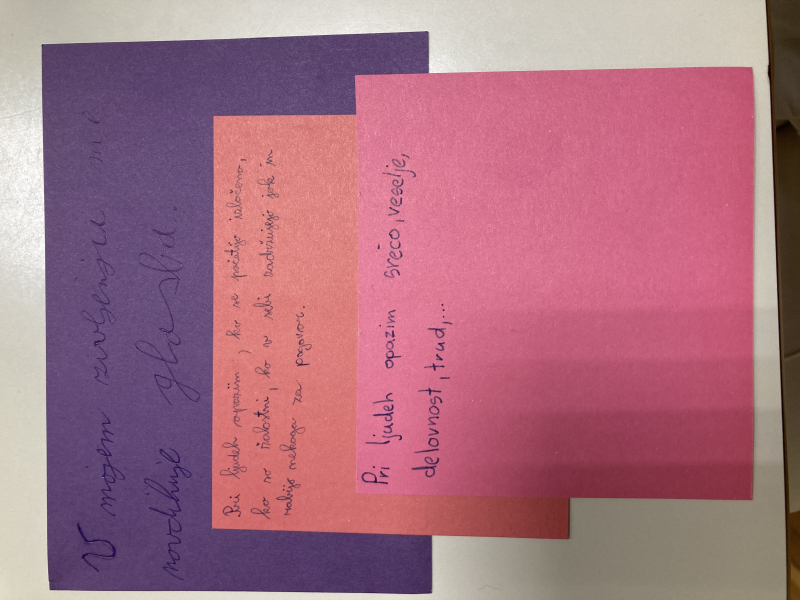 V mojem življenju me
navdihuje glasba.
Pri ljudeh opazim, ko se počutijo izločeno,
ko so žalostni, ko v sebi zadržujejo jok in
rabijo nekoga za pogovor.
Pri ljudeh opazim srečo, veselje,
delovnost, trud,...